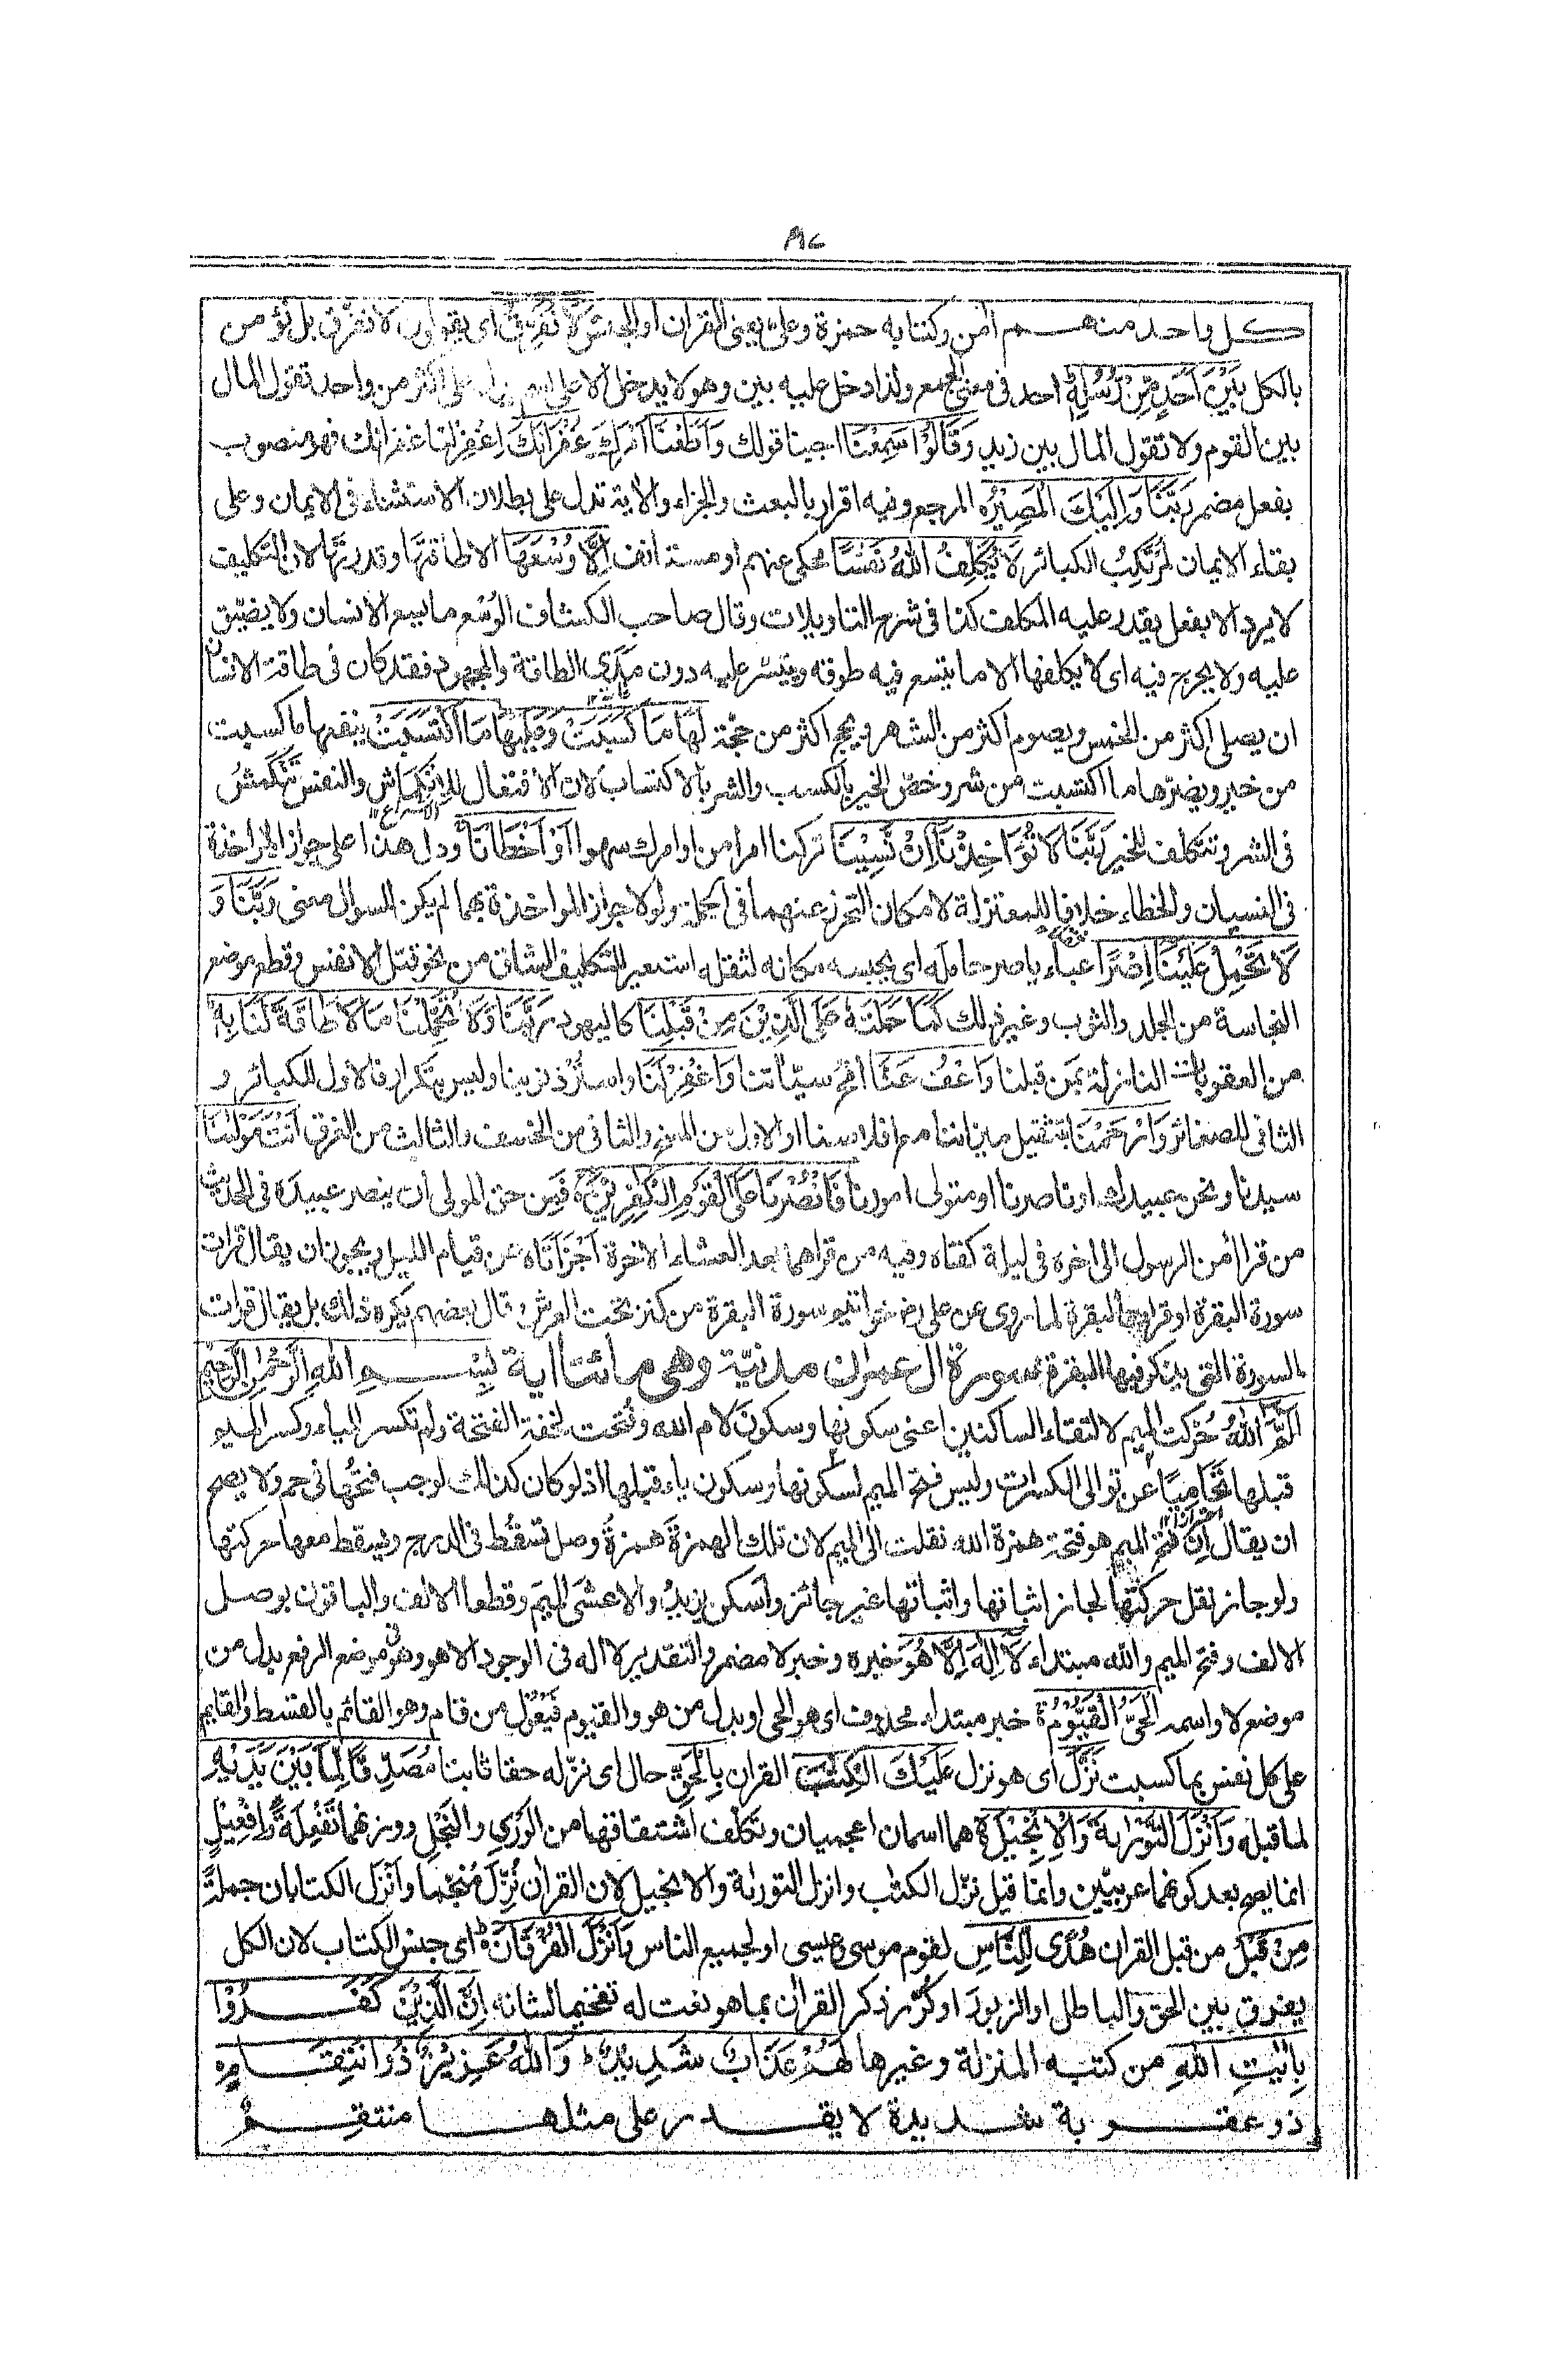 ٨٧
كل واحد منهم اٰمن وكتابه حمزة وعلى يعنى القران او الجنس لَا نُفَرِّقُ اى يقولون لا نفرق بل نؤمن
بالكل بَيْنَ اَحَدٍ مِّنْ رُّسُلِهٖ احد فى معنى الجمع ولذا دخل عليه بين وهو لا يدخل الا على اسم يدل على اكثر من واحد تقول المال
بين القوم ولا تقول المال بين زيد وَقَالُوْا سَمِعْنَا اجبنا قولك وَاَطَعْنَا امرك غُفْرَانَكَ اغفر لنا غفرانك فهو منصوب
بفعل مضمر رَبَّنَا وَاِلَيْكَ الْمَصِيْرُ المرجع وفيه اقرار بالبعث والجزاء والاية تدل على بطلان الاستثناء فى الايمان وعلى
بقاء الايمان لمرتكب الكبائر لَا يُكَلِّفُ اللّٰهُ نَفْسًا محكى عنهم او مستانف اِلَّا وُسْعَهَا الا طاقتها وقدرتها لان التكليف
لا يرد الا بفعل يقدر عليه المكلف كذا فى شرح التاويلات وقال صاحب الكشاف الوُسْع ما يسع الانسان ولا يضيّق
عليه ولا يحرج فيه اى لا يكلفها الا ما يتسع فيه طوقه ويتيسّر عليه دون مدى الطاقة والمجهود فقد كان فى طاقة الانسان
ان يصلى اكثر من الخمس ويصوم اكثر من الشهر ويحج اكثر من حجّة لَهَا مَا كَسَبَتْ وَعَلَيْهَا مَا اكْتَسَبَتْ ينفعها ما كسبت
من خير ويضرّها ما اكتسبت من شر وخصّ الخير بالكسب والشر بالاكتساب لان الافتعال للانكماش والنفس تنكمشُ
الاسراع ١٢
فى الشر وتتكلف للخير رَبَّنَا لَا تُؤَاخِذْنَا اِنْ نَّسِيْنَا تركنا امرا من اوامرك سهوا اَوْ اَخْطَاْنَا ودل هذا على جواز المؤاخذة
فى النسيان والخطاء خلافا للمعتزلة لامكان التحرز عنهما فى الجملة ولولا جواز المواخذة بهما لم يكن للسوال معنى رَبَّنَا وَ
لَا تَحْمِلْ عَلَيْنَا اِصْرًا عباء ياصر حامله اى يحبسه مكانه لثقله استعير للتكليف الشاق من نحو قتل الانفس وقطع موضع
النجاسة من الجلد والثوب وغير ذلك كَمَا حَمَلْتَهٗ عَلَى الَّذِيْنَ مِنْ قَبْلِنَا كاليهود رَبَّنَا وَلَا تُحَمِّلْنَا مَا لَا طَاقَةَ لَنَا بِهٖ
من العقوبات النازلة بمن قبلنا وَاعْفُ عَنَّا امح سيّاتنا وَاغْفِرْ لَنَا واستر ذنوبنا وليس بتكرار فالاول للكبائر و
الثانى للصغائر وَارْحَمْنَا بتثقيل ميزاننا مع افلاسنا او الاول من المسخ والثانى من الخسف والثالث من الغرق اَنْتَ مَوْلٰىنَا
سيدنا ونحن عبيدك او ناصرنا او متولى امورنا فَانْصُرْنَا عَلَى الْقَوْمِ الْكٰفِرِيْنَ فمِن حق المولى ان ينصر عبيده فى الحديث
من قرا اٰمن الرسول الى اخره فى ليلة كفتاه وفيه من قراهما بعد العشاء الاخرة اَجْزَاَتَاه عن قيام الليل ويجوز ان يقال قرات
سورة البقرة او قرات البقرة لما روى عن على رض خواتيم سورة البقرة من كنز تحت العرش وقال بعضهم يكره ذلك بل يقال قرات
السورة التى يذكر فيها البقرة سورة ال عمران مدنيّة وهى مائتا اية بِسْمِ اللّٰهِ الرَّحْمٰنِ الرَّحِيْمِ
الٓمّٓ اللّٰهُ حُرّكت الميم لالتقاء الساكنين اعنى سكونها وسكون لام الله وفُتحت لخفة الفتحة ولم تكسر للياء وكسر الميم
قبلها تحاميًا عن توالى الكسرات وليس فتح الميم لسكونها وسكون ياء قبلها اذ لو كان كذلك لوجب فتحُها فى حم ولا يصح
احترازا ١٢
ان يقال ان فتح الميم هو فتحة همزة الله نقلت الى الميم لان تلك الهمزة همزةُ وصل تسقُط فى الدرج ويسقط معها حركتها
ولو جاز نقل حركتها لجاز اثباتها واثباتها غير جائز واسكن يزيدُ والاعشى الميمَ وقطعا الالف والباقون بوصل
الالف وفتح الميم والله مبتداء لَآ اِلٰهَ اِلَّا هُوَ خبره وخبر لا مضمر والتقدير لا اله فى الوجود الا هو وهو فى موضع الرفع بدل من
موضع لا واسمه الْحَىُّ الْقَيُّوْمُ خبر مبتداء محذوف اى هو الحى او بدل من هو والقيوم فَيْعُوْل من قام وهو القائم بالقسط والقايم
على كل نفس بما كسبت نَزَّلَ اى هو نزل عَلَيْكَ الْكِتٰبَ القران بِالْحَقِّ حال اى نزّله حقا ثابتا مُصَدِّقًا لِّمَا بَيْنَ يَدَيْهِ
لما قبله وَاَنْزَلَ التَّوْرٰىةَ وَالْاِنْجِيْلَ هما اسمان اعجميان وتكلّف اشتقاقهما من الوَرْى والنَّجْلِ ووزنهما تَفْعِلَة واِفْعِيْلٍ
انما يصح بعد كونهما عربيّين وانما قيل نزّل الكتٰب وانزل التورٰىة والانجيل لان القران نُزّل مُنَجّما واُنْزِل الكتابان جملةً
مِنْ قَبْلُ من قبل القران هُدًى لِّلنَّاسِ لقوم موسى وعيسى او لجميع الناس وَاَنْزَلَ الْفُرْقَانَ اى جنس الكتاب لان الكل
يفرق بين الحق والباطل او الزبور او كرّر ذكر القران بما هو نعت له تفخيما لشانه اِنَّ الَّذِيْنَ كَفَرُوْا
بِاٰيٰتِ اللّٰهِ من كتبه المنزلة وغيرها لَهُمْ عَذَابٌ شَدِيْدٌ وَاللّٰهُ عَزِيْزٌ ذُو انْتِقَامٍ
ذو عقوبة شديدة لا يقدر على مثلها منتقم